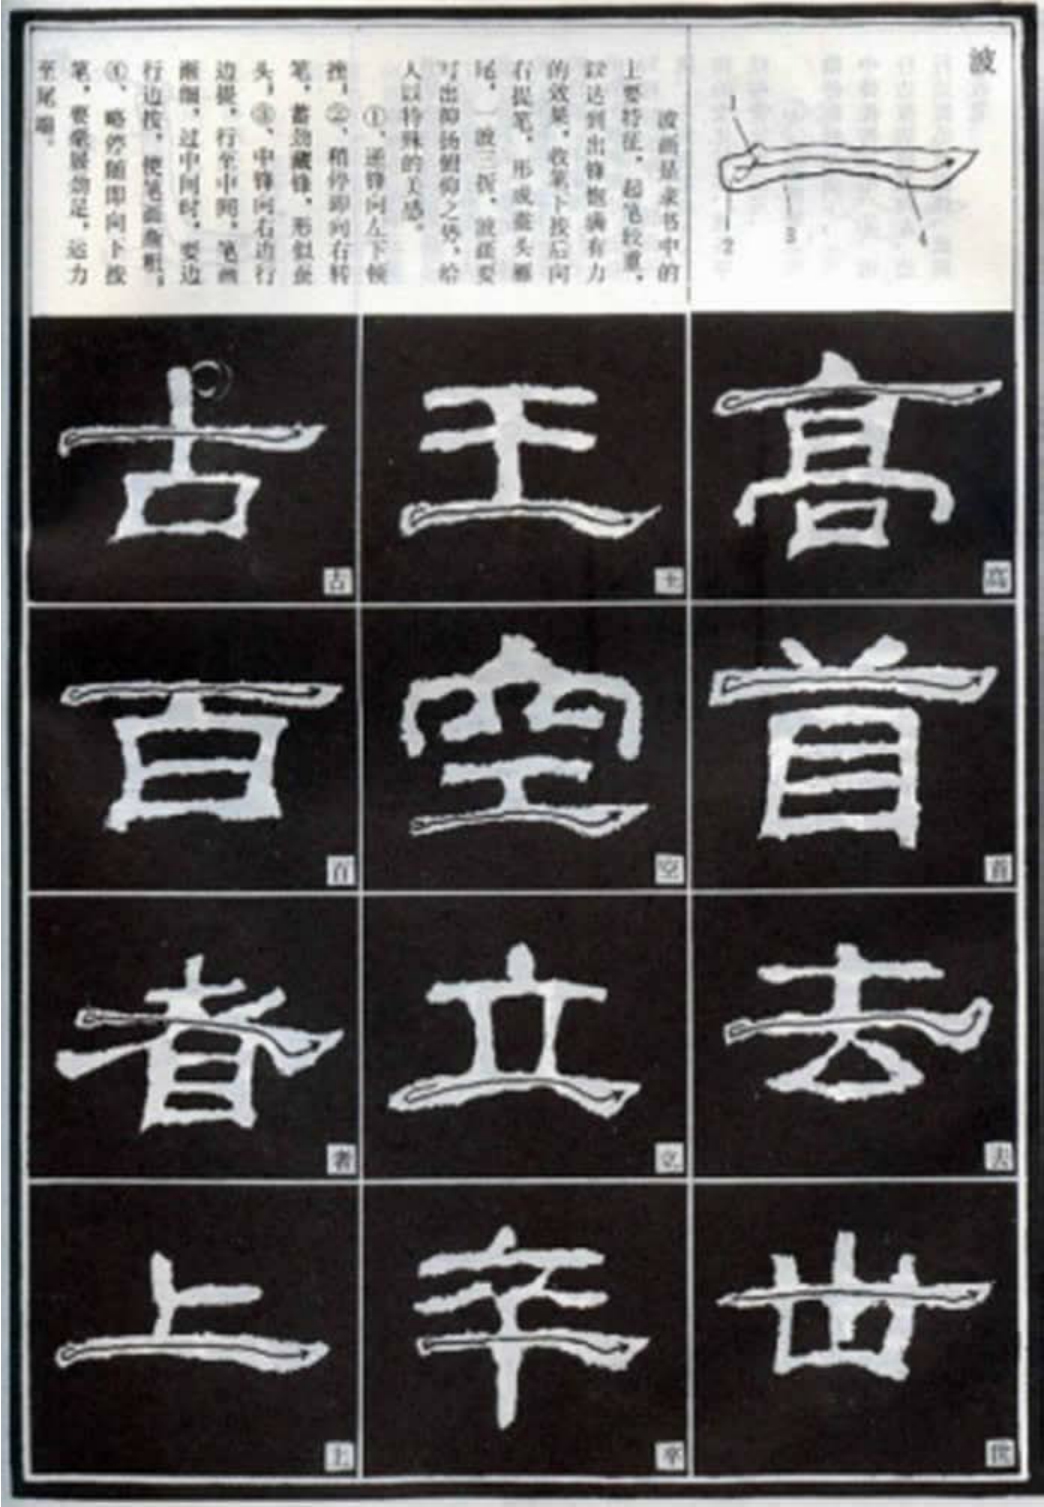 波
1
2
3
4
波画是隶书中的
主要特征,起笔较重,
以达到出锋饱满有力
的效果,收笔下按后向
右提笔,形成蚕头雁
尾,一波三折,波画要
写出抑扬俯仰之势,给
人以特殊的美感。
①、逆锋向左下顿
挫,②、稍停即向右转
笔,蓄劲藏锋,形似蚕
头,③、中锋向右边行
边提,行至中间,笔画
渐细,过中间时,要边
行边按,使笔画渐粗;
④、略停随即向下按
笔,要毫展劲足,运力
至尾端。
高
高
王
王
古
古
首
首
空
空
百
百
去
去
立
立
者
者
世
世
卒
卒
上
上